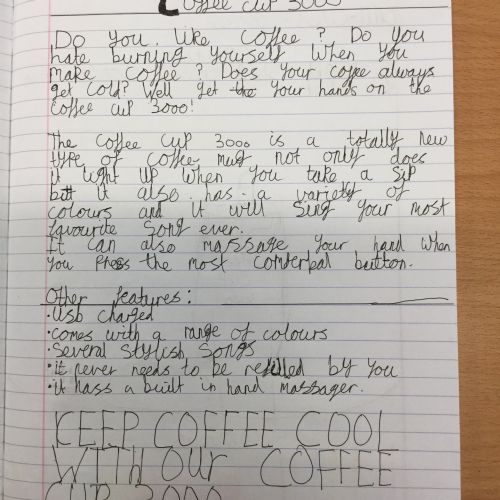 Coffee cup 3000
Do you like coffee? Do you
hate burning yourself when you
make coffee? Does your coffee always
get cold? Well get the your hands on the
coffee cup 3000!
The coffee cup 3000 is a totally new
type of coffee mug not only does
it light up when you take a sip
but it also has a variety of
colours and it will sing your most
favourite song ever.
It can also massage your hand when
you press the most comterbal button.
Other features:
• Usb charged
• comes with a range of colours
• Several stylish songs
• it never needs to be refilled by you
• it hass a built in hand massager.
KEEP COFFEE COOL
WITH OUR COFFEE
CUP 3000